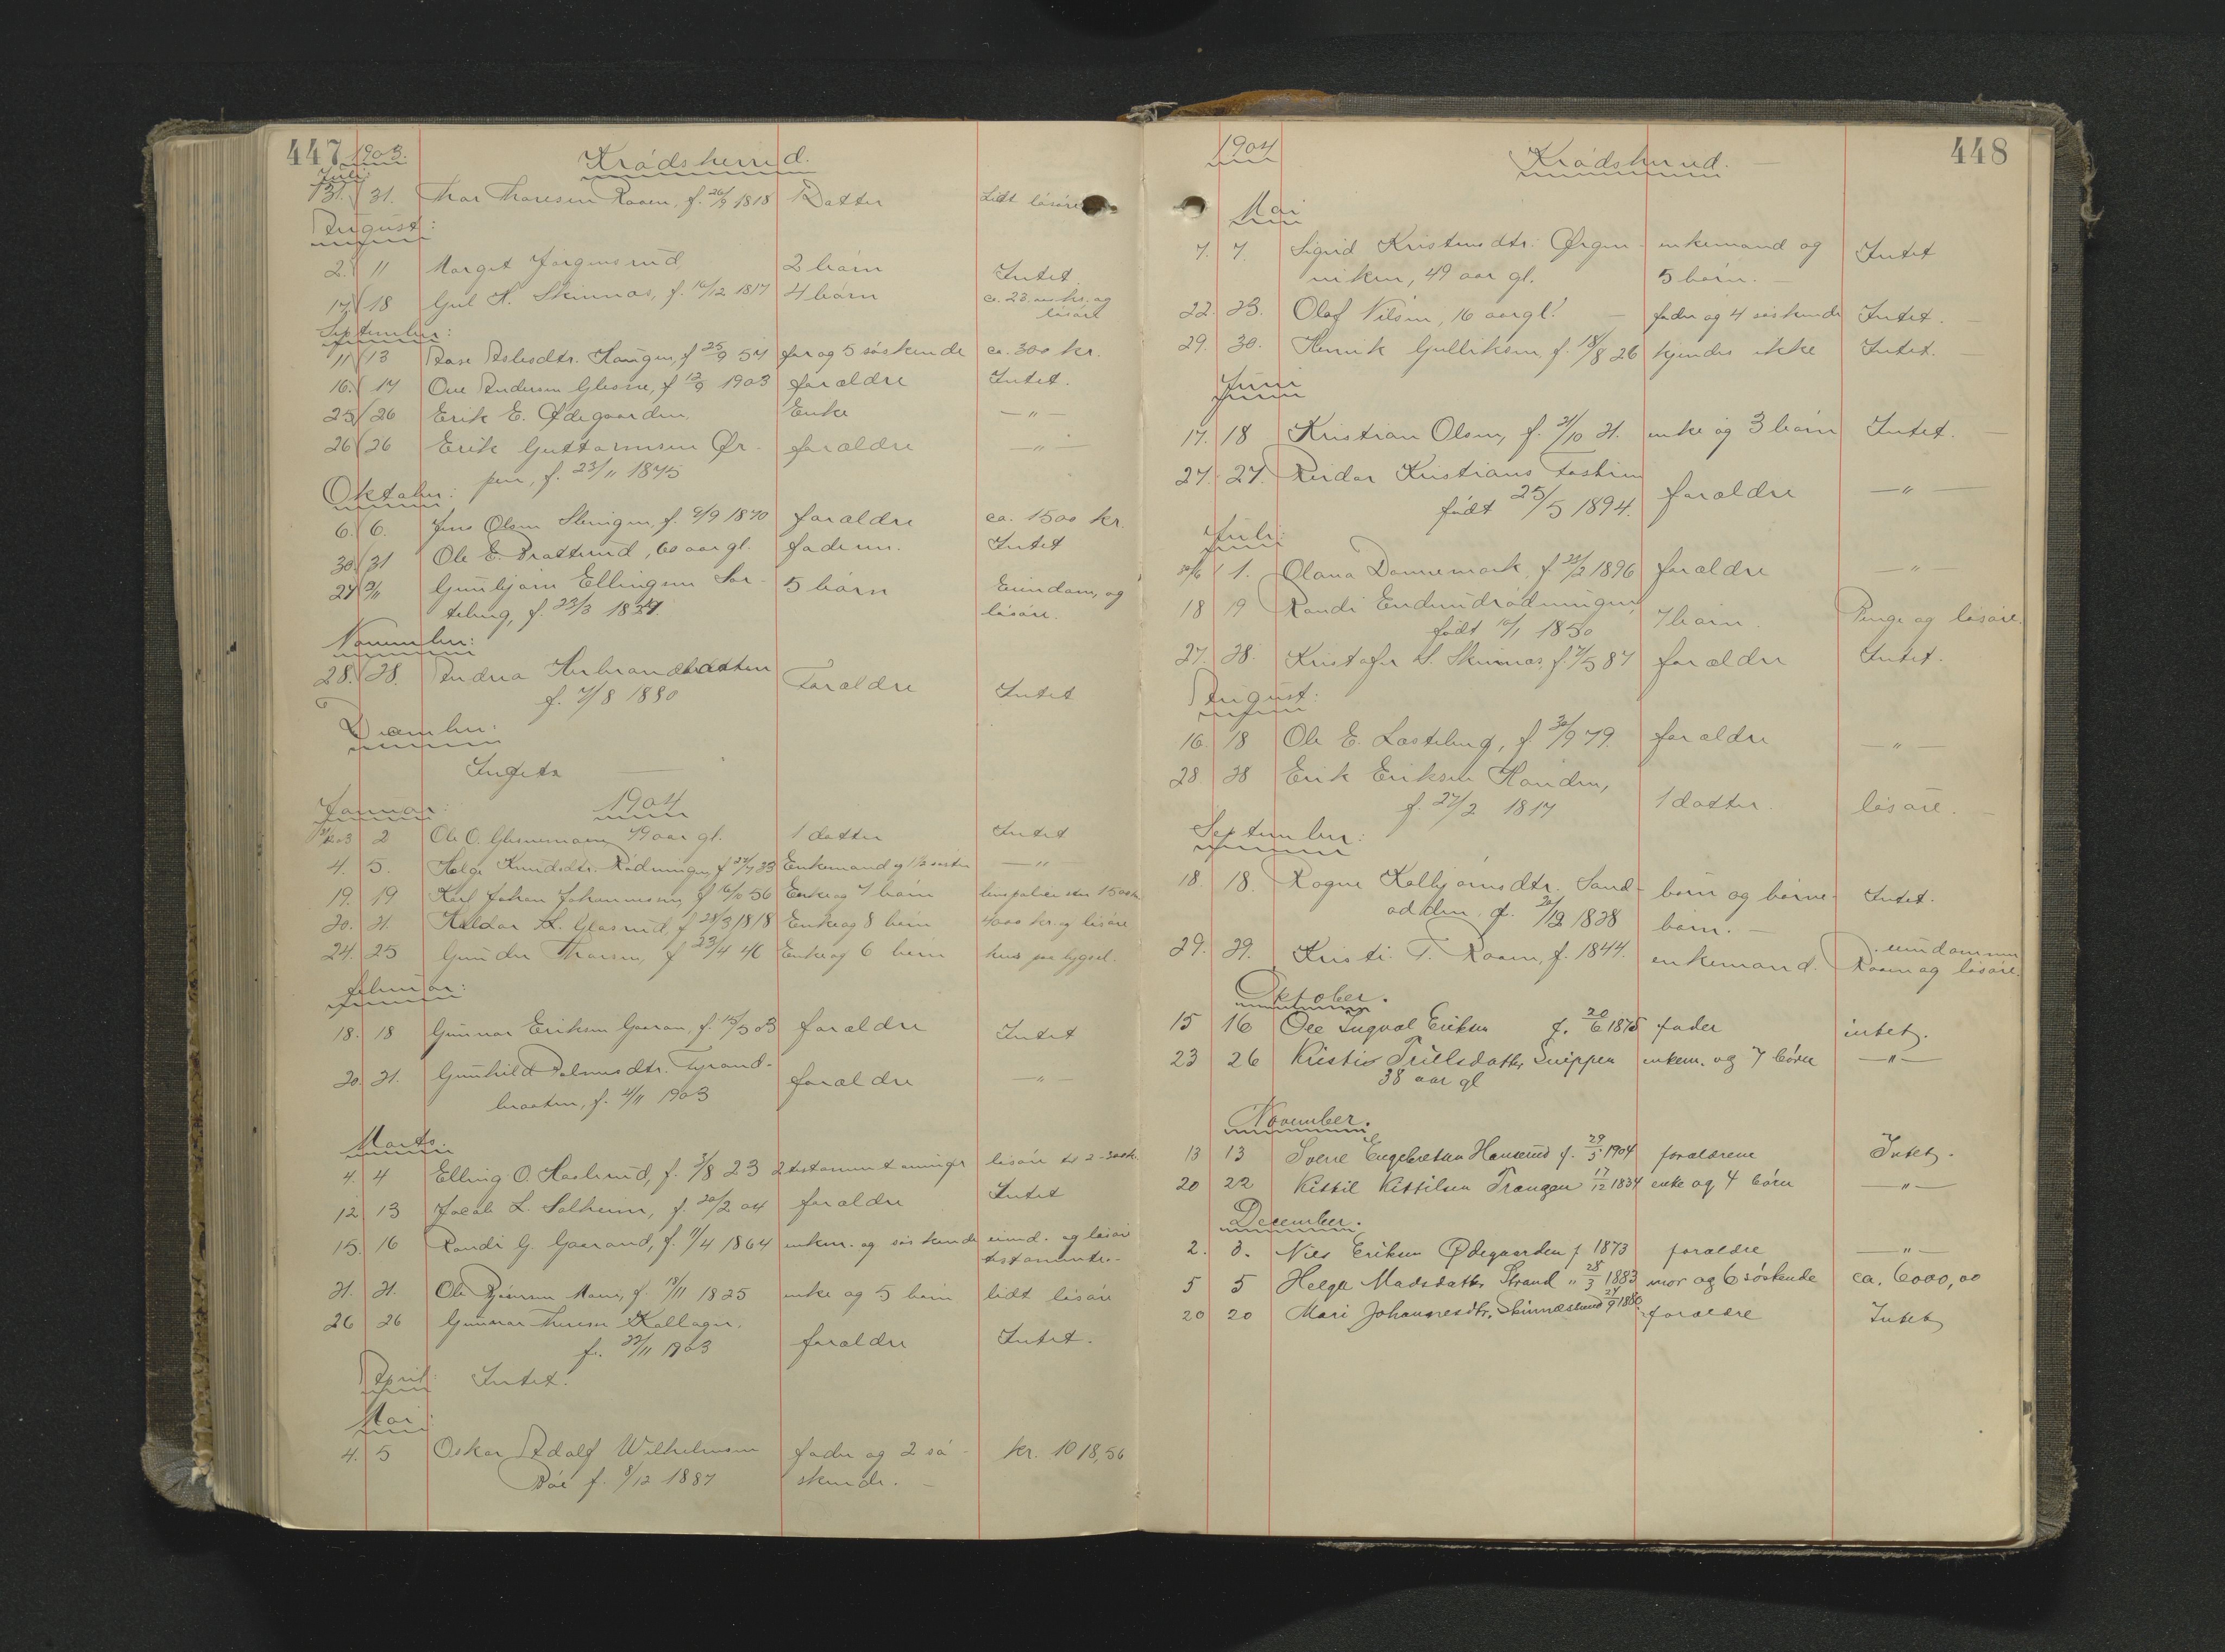 447 1903. Krødsherred.
Juli:
31. 31. Thor Thoresen Raaen, f. 26/9 1818 1 Datter Lidt løsøre
August:
2. 11 Margit Jørgensrud 2 børn Intet
17. 18 Gul H. Skinnæs, f. 16/12 1817 4 børn ca. 23 kr. og
løsøre
September:
11 13 Aase Aslesdtr. Haugen, f 25/9 54 far og 5 søskende ca. 300 kr.
16. 17 Ove Andersen Glesne, f 12/9 1903 forældre Intet.
25 26 Erik E. Ødegaarden. Enke — " —
26 26 Erik Guttormsen Ør- forældre — " —
pen, f. 23/11 1875
Oktober:
6. 6. Jens Olsen Slevigen, f. 9/9 1870 forældre ca. 1500 kr.
30. 31 Ole E. Brattrud, 60 aar gl. faderen. Intet
27 2/11 Gunbjørn Ellingsen Lar- 5 børn Eiendom, og
teberg, f. 23/3 1827. løsøre.
November:
28. 28. Andrea Herbrandsbraaten
f. 7/8 1880 Forældre Intet
December:
Ingen
Januar: 1904
2 Ole O. Glesnemoen, 79 aar gl. 1 datter Intet
4. 5. Helge Knudsdtr. Rødningen, f 27/7 33 Enkemand og 1/2 søster — " —
19. 19 Karl Johan Johannesen, f 16/10 56 Enke og 7 børn livspolice stor 1500 kr.
20. 21. Haldor K. Glesrud, f 28/3 1818 Enke og 8 børn 4000 kr. og løsøre
24. 25 Gunder Thoresen, f 23/4 46 Enke og 6 børn hus paa bygsel.
Februar:
18. 18 Gunnar Eriksen Gaaran, f. 15/5 03 forældre Intet
20. 21. Gunhild Palmesdtr. Tyrand-
braaten, f. 4/11 1903 forældre — " —
Marts.
4. 4 Elling O. Haslerud, f. 3/8 23 2 testament arvinger løsøre til 2-300 kr.
12 13 Jacob L. Solheim, f. 20/2 04 forældre Intet
15. 16 Randi G. Gaarand, f. 11/4 1864 enkem. og søskende eiend. og løsøre
testamente.
21. 21. Ole Bjørnsen Moen, f. 18/11 1825 enke og 5 børn lidt løsøre
26 26 Gunnar Thoresen Kallager.
f. 22/11 1903 forældre Intet.
April: Intet.
Mai:
4. 5 Oskar Adolf Wilhelmsen fader og 2 sø- kr. 1018,56
Bøe f. 8/12 1887 skende.
1904 Krødsherred. — 448
Mai
7. 7. Sigrid Kristensdtr. Ørgen- enkemand og Intet
viken, 49 aar gl. 5 børn. —
22. 23. Olaf Nilsen, 16 aar gl. — fader og 4 søskende Intet.
29. 30. Henrik Gulliksen, f. 18/8 26 kjendes ikke Intet.
Juni
17. 18 Kristian Olsen, f. 21/10 21. enke og 3 børn Intet.
27. 27. Reidar Kristians Fostein
født 25/5 1894. forældre — " —
Juli:
30/6 1. Olava Dannemark, f. 22/2 1896 forældre — " —
18 19 Randi Enderudrødningen,
født 10/1 1850 7 børn. Penge og løsøre.
27. 28. Kristofer S. Skinnæs, f. 7/5 87 forældre Intet.
August:
16. 18 Ole E. Lasteberg, f 30/9 79. forældre — " —
28. 28 Erik Eriksen Handen,
f. 27/2 1817 1 datter. løsøre. —
September:
18. 18. Rogne Kolbjørnsdtr. Sand- børn og børne- Intet.
odden, f. 20/12 1828 børn. —
29. 29. Kristi T. Raaen, f. 1844. enkemand. eiendommen
Raaen og løsøre.
Oktober.
15 16 Ole Ingval Eriksen f. 20/6 1875 fader intet.
23 26 Kristine Trulsdatter Snippen enkem. og 7 børn — " —
38 aar gl
November.
13 13 Sverre Engebretsen Hanserud f. 29/5 1904 forældrene Intet.
20 22 Kittil Kittilsen Trangen 17/12 1834 enke og 4 børn — " —
December.
2. 3. Nils Eriksen Ødegaarden f 1873 forældre — " —
5 5 Helga Madsdatter Strand " 28/3 1883 mor og 6 søskende ca. 6000,00
20 20 Mari Johannesdtr. Skinnæseund 24/9 1880 forældre Intet